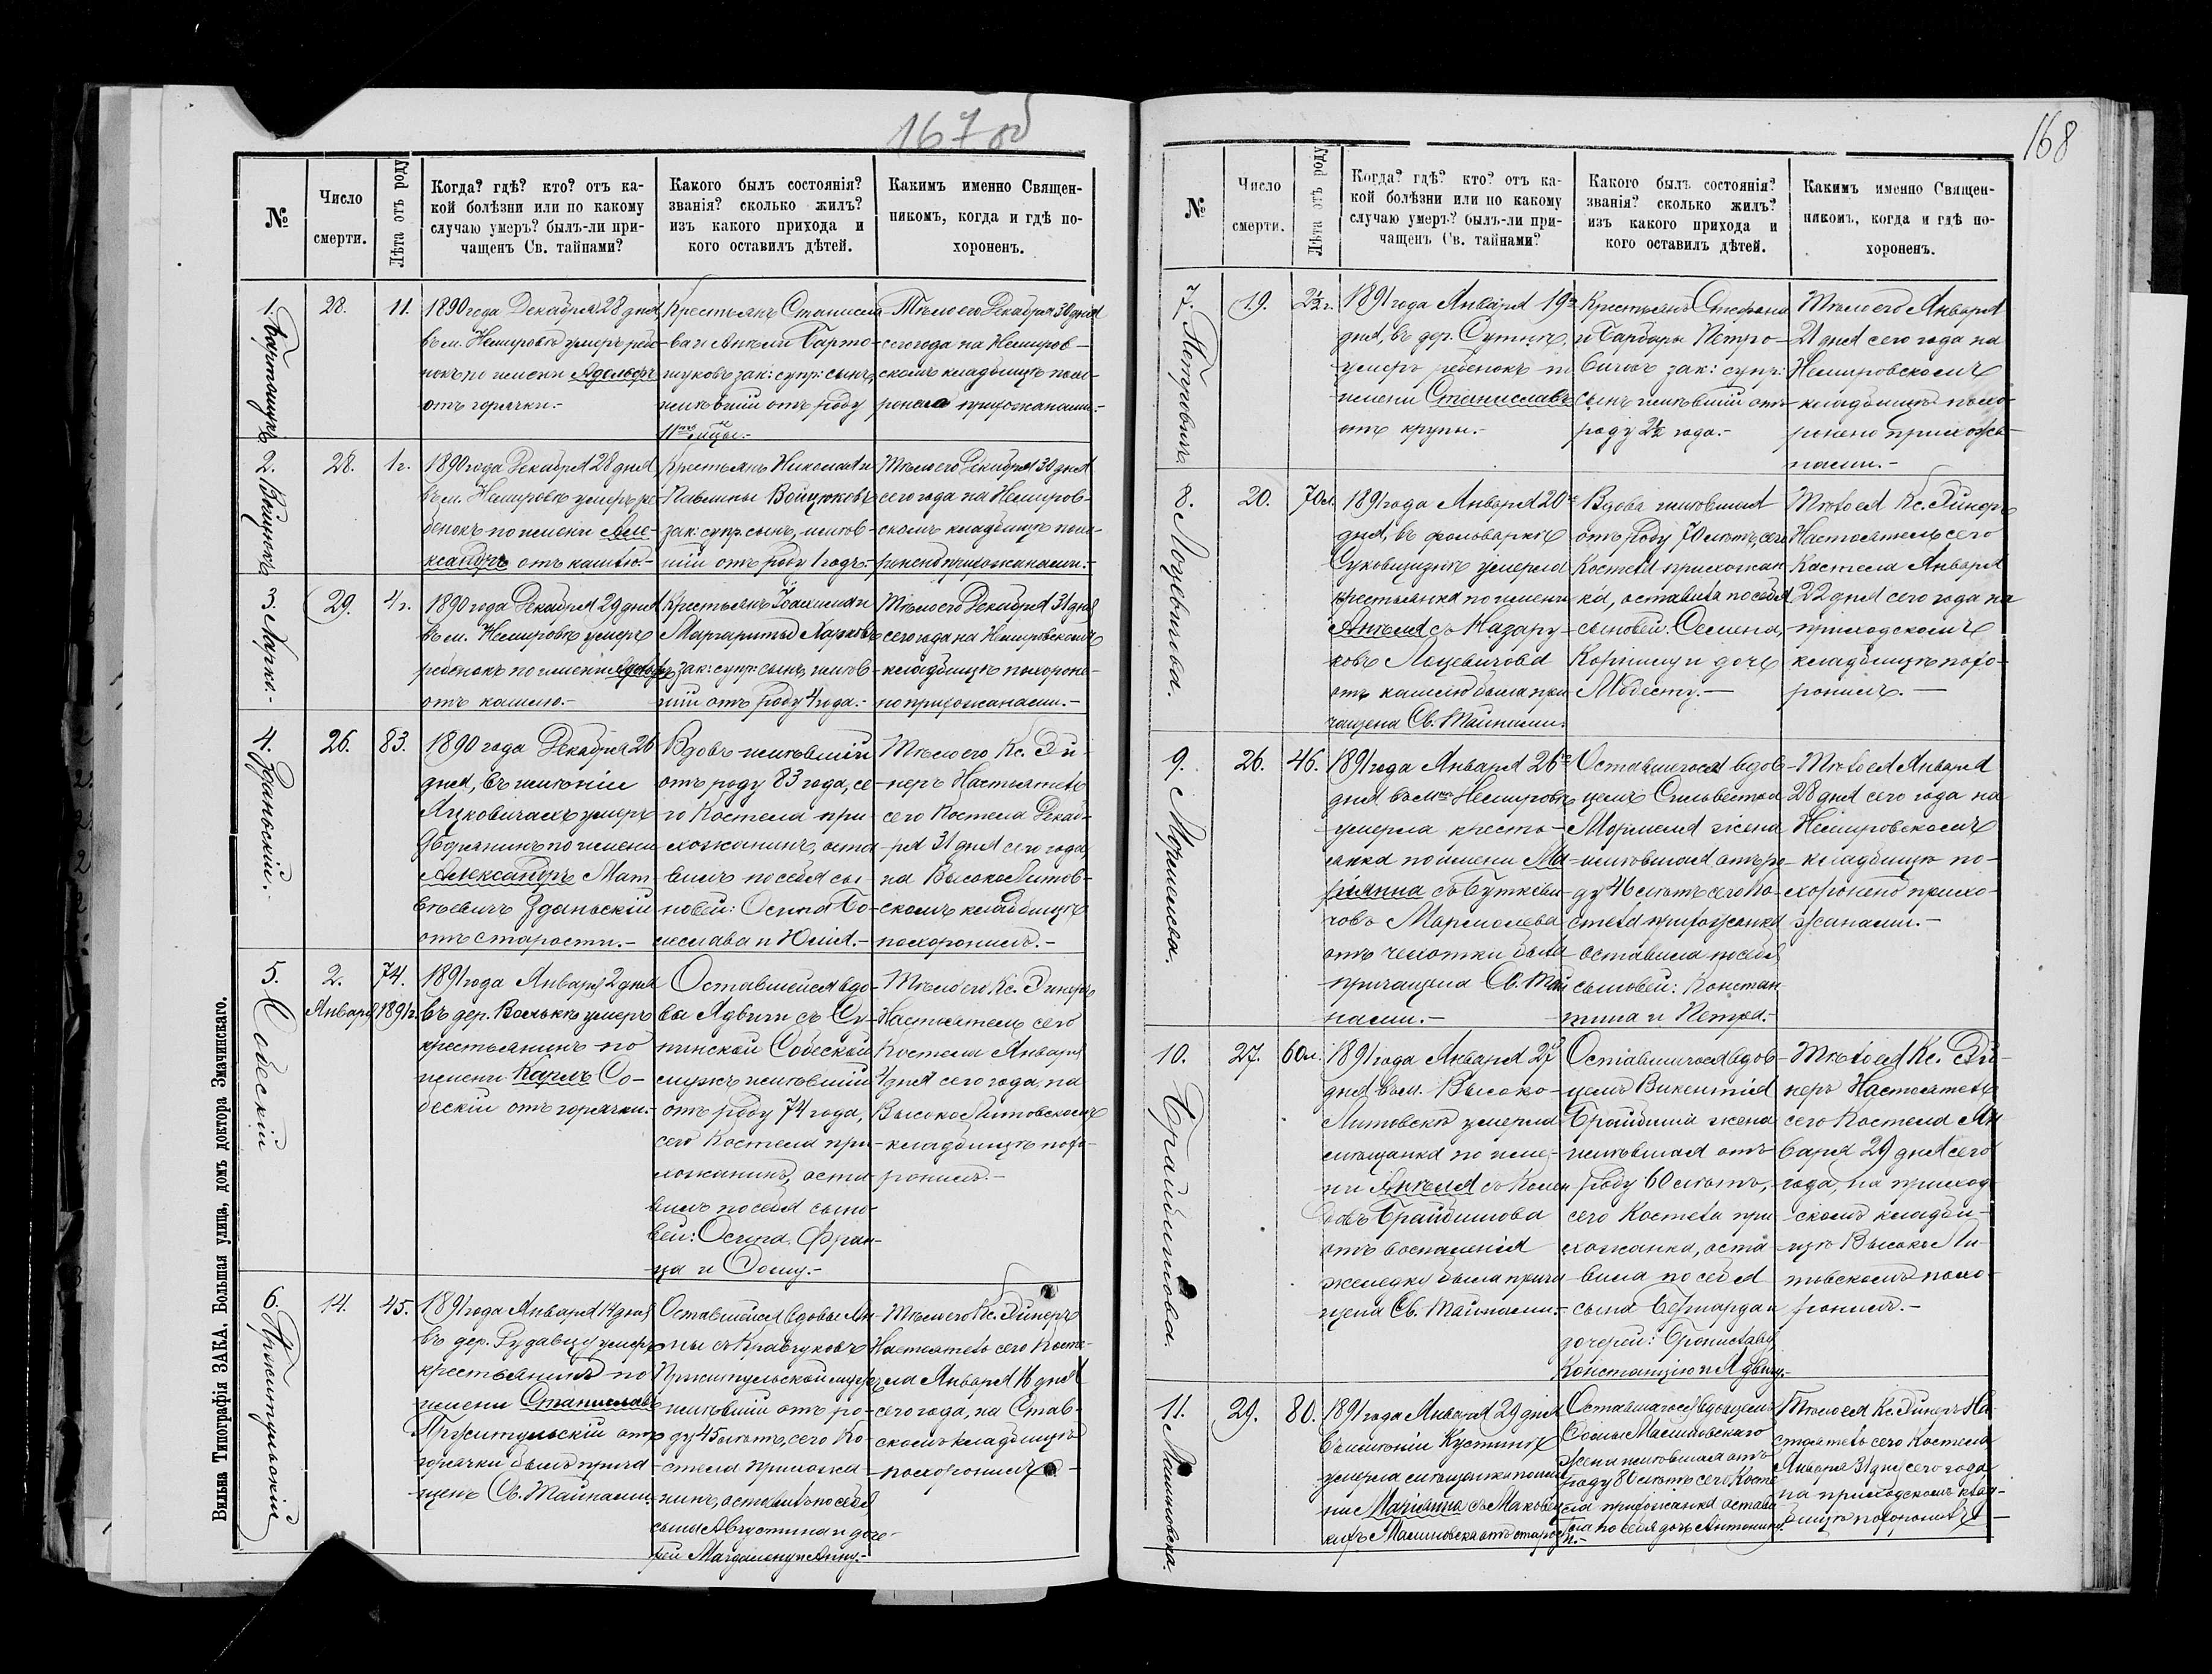 167 об
№
Число
смерти.
Лѣта отъ роду
Когда? гдѣ? кто? отъ ка-
кой болѣзни или по какому
случаю умеръ? былъ-ли при-
чащенъ Св. тайнами?
Какого былъ состоянія?
званія? сколько жилъ?
изъ какого прихода и
кого оставилъ дѣтей.
Какимъ именно Священ-
никомъ, когда и гдѣ по-
хороненъ.
1.
28.
11.
1890 года Декабря 28 дня
въ м. Немировѣ умеръ ребе-
нокъ по имени Адольфъ
отъ горячки.-
Крестьянъ Станисла-
ва и Анели Барто-
шуковъ зак: супр: сынъ,
жившій отъ роду
11
Тѣло его Декабря 30 дня
сего года на Немиров-
скомъ кладбищѣ похо-
ронено прихожанами.-
2. Войцюкъ
28.
1 г.
1890 года Декабря 28 дня
въ м. Немировѣ умеръ ре-
бенокъ по имени Але-
ксандръ отъ кашлю.-
Крестьянъ Николая и
Павлины Войцюковъ
зак: супр: сынъ, жив-
шій отъ роду 1 годъ.-
Тѣло его Декабря 30 дня
сего года на Немиров-
скомъ кладбищѣ похо-
ронено прихожанами.-
3. Ларко.-
29.
4 г.
1890 года Декабря 29 дня
въ м. Немировѣ умеръ
ребенокъ по имени Адольфъ
отъ кашлю.-
Крестьянъ Іоахима и
Маргариты Ларковъ
зак: супр: сынъ, жив-
шій отъ роду 4 года.-
Тѣло его Декабря 31 дня
сего года на Немировскомъ
кладбищѣ похороне-
но прихожанами.-
4. Зданьскій.
26.
83.
1890 года Декабря 26
дня, въ имѣніи
умеръ
Дворянинъ по имени
Александръ Мат-
вѣевичъ Зданьскій
отъ старости.-
Вдовъ жившій
отъ роду 83 года, се-
го Костела при-
хожанинъ, оста-
вилъ по себѣ сы-
новей: Осипа Бо-
леслава и Юлія.-
Тѣло его Кс. Эй-
неръ Настоятель
сего Костела Декаб-
ря 31 дня сего года,
на Высоко Литов-
скомъ кладбищѣ
похоронилъ.-
5. Собескій
2.
Января
74.
1891 г.
1891 года Января 2 дня
въ дер. Волькѣ умеръ
крестьянинъ по
имени Карлъ Со-
бескій отъ горячки.-
Оставшейся вдо-
вы Ядвиги съ
Собеской
мужъ жившій
отъ роду 74 года,
сего Костела при-
хожанинъ, оста-
вилъ по себѣ сыно-
вей: Осипа, Фран-
ца и Фому.-
Тѣло его Кс. Эйнеръ
Настоятель сего
Костела Января
4 дня сего года, на
Высоко Литовскомъ
кладбищѣ похо-
ронилъ.-
6. Пржитульскій
14.
45.
1891 года Января 14 дня
въ дер. Рудавцу умеръ
крестьянинъ по
имени Станиславъ
Пржитульскій отъ
горячки былъ прича-
щенъ Св. Тайнами.
Оставшійся вдовы Ан-
ны съ Кравчуковъ
Пржитульской мужъ
жившій отъ ро-
ду 45 лѣтъ, сего Ко-
стела прихожа-
нинъ, оставилъ по себѣ
сына Августина и доче-
рей Магдалену и Анну.-
Тѣло его Кс. Эйнеръ
Настоятель сего Косте-
ла Января 16 дня
сего года, на Став-
скомъ кладбищѣ
похоронилъ.-
Вильна Типографія ЗАКА, Большая улица, домъ доктора Змачинскаго.
168
№
Число
смерти.
Лѣта отъ роду
Когда? гдѣ? кто? отъ ка-
кой болѣзни или по какому
случаю умеръ? былъ-ли при-
чащенъ Св. тайнами?
Какого былъ состоянія?
званія? сколько жилъ?
изъ какого прихода и
кого оставилъ дѣтей.
Какимъ именно Священ-
никомъ, когда и гдѣ по-
хороненъ.
7. Петровичъ
19.
2½ г.
1891 года Января 19
дня, въ дер.
умеръ ребенокъ по
имени Станиславъ
отъ крупы.-
Крестьянъ Стефана
и Барбары Петро-
вичъ зак: супр:
сынъ жившій отъ
роду 2½ года.-
Тѣло его Января
21 дня сего года на
Немировскомъ
кладбищѣ похо-
ронено прихожа-
нами.-
8. Лоцевичова.
20.
70 л.
1891 года Января 20
дня, въ фольваркѣ
умерла
крестьянка по имени
Анеля съ Назару-
ковъ Лоцевичова
отъ кашлю была при-
чащена Св. Тайнами.
Вдова жившая
отъ роду 70 лѣтъ, сего
Костела прихожан-
ка, оставила по себѣ
сыновей: Семена,
и дочь
Модесту.-
Тѣло ея Кс. Эйнеръ
Настоятель сего
Костела Января
22 дня сего года на
приходскомъ
кладбищѣ похо-
ронилъ.-
9.
26.
46.
1891 года Января 26
дня въ м. Немировѣ
умерла кресть-
янка по имени Ма-
ріанна съ Буткеви-
човъ
отъ чахотки была
причащена Св. Тай-
нами.-
Оставшагося вдов-
цемъ Сильвестра
жена
жившая отъ ро-
ду 46 лѣтъ сего Ко-
стела прихожанка
оставила по себѣ
сыновей: Констан-
тина и Петра.-
Тѣло ея Января
28 дня сего года на
Немировскомъ
кладбищѣ по-
хоронено прихо-
жанами.-
10.
27.
60 л.
1891 года Января 27
дня въ м. Высоко-
Литовскѣ умерла
мѣщанка по име-
ни Анеля съ
отъ воспаленія
желудку была прича-
щена Св. Тайнами.-
Оставшагося вдов-
цемъ Викентія
жена
жившая отъ
роду 60 лѣтъ,
сего Костела при-
хожанка, оста-
вила по себѣ
сына Бернарда и
дочерей: Брониславу
Констанцію и Ядвигу.-
Тѣло ея Кс. Эй-
неръ Настоятель
сего Костела Ян-
варя 29 дня сего
года, на приход-
скомъ кладби-
щѣ Высоко Ли-
товскомъ похо-
ронилъ.-
11. Малиновска.
29.
80.
1891 года Января 29 дня
въ имѣніи
умерла мѣщанка по име-
ни Маріанна съ
Малиновска отъ старос-
ти.-
Оставшагося вдовцемъ
Фомы Малиновскаго
жена жившая отъ
роду 80 лѣтъ сего Косте-
ла прихожанка остави-
ла по себѣ дочь Антонину.
Тѣло ея Кс. Эйнеръ На-
стоятель сего Костела
Января 31 дня сего года,
на приходскомъ клад-
бищѣ похоронилъ.-